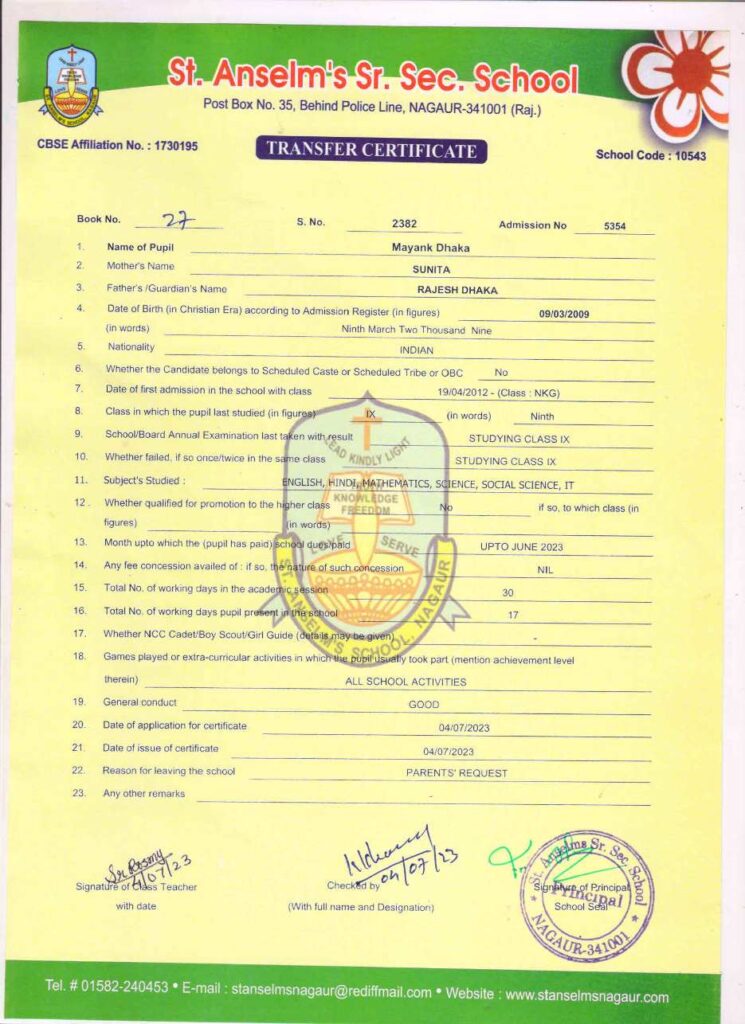 St. Anselm's Sr. Sec. School
Post Box No. 35, Behind Police Line, NAGAUR-341001 (Raj.)
CBSE Affiliation No. : 1730195
TRANSFER CERTIFICATE
School Code : 10543
Book No. 27 S. No. 2382 Admission No 5354
1. Name of Pupil Mayank Dhaka
2. Mother's Name SUNITA
3. Father's /Guardian's Name RAJESH DHAKA
4. Date of Birth (in Christian Era) according to Admission Register (in figures) 09/03/2009
(in words) Ninth March Two Thousand Nine
5. Nationality INDIAN
6. Whether the Candidate belongs to Scheduled Caste or Scheduled Tribe or OBC No
7. Date of first admission in the school with class 19/04/2012 - (Class : NKG)
8. Class in which the pupil last studied (in figures) IX (in words) Ninth
9. School/Board Annual Examination last taken with result STUDYING CLASS IX
10. Whether failed, if so once/twice in the same class STUDYING CLASS IX
11. Subject's Studied : ENGLISH, HINDI, MATHEMATICS, SCIENCE, SOCIAL SCIENCE, IT
12. Whether qualified for promotion to the higher class No if so, to which class (in
figures) (in words)
13. Month upto which the (pupil has paid) school dues/paid UPTO JUNE 2023
14. Any fee concession availed of : if so, the nature of such concession NIL
15. Total No. of working days in the academic session 30
16. Total No. of working days pupil present in the school 17
17. Whether NCC Cadet/Boy Scout/Girl Guide (details may be given) -
18. Games played or extra-curricular activities in which the pupil usually took part (mention achievement level
therein) ALL SCHOOL ACTIVITIES
19. General conduct GOOD
20. Date of application for certificate 04/07/2023
21. Date of issue of certificate 04/07/2023
22. Reason for leaving the school PARENTS' REQUEST
23. Any other remarks
LEAD KINDLY LIGHT
KNOWLEDGE
FREEDOM
LOVE SERVE
ST. ANSELM'S SCHOOL, NAGAUR
Sr Rosmy
4/07/23
04/07/23
Signature of Class Teacher
with date
Checked by
(With full name and Designation)
Signature of Principal
School Seal
St. Anselms Sr. Sec. School
Principal
NAGAUR-341001
Tel. # 01582-240453 • E-mail : stanselmsnagaur@rediffmail.com • Website : www.stanselmsnagaur.com